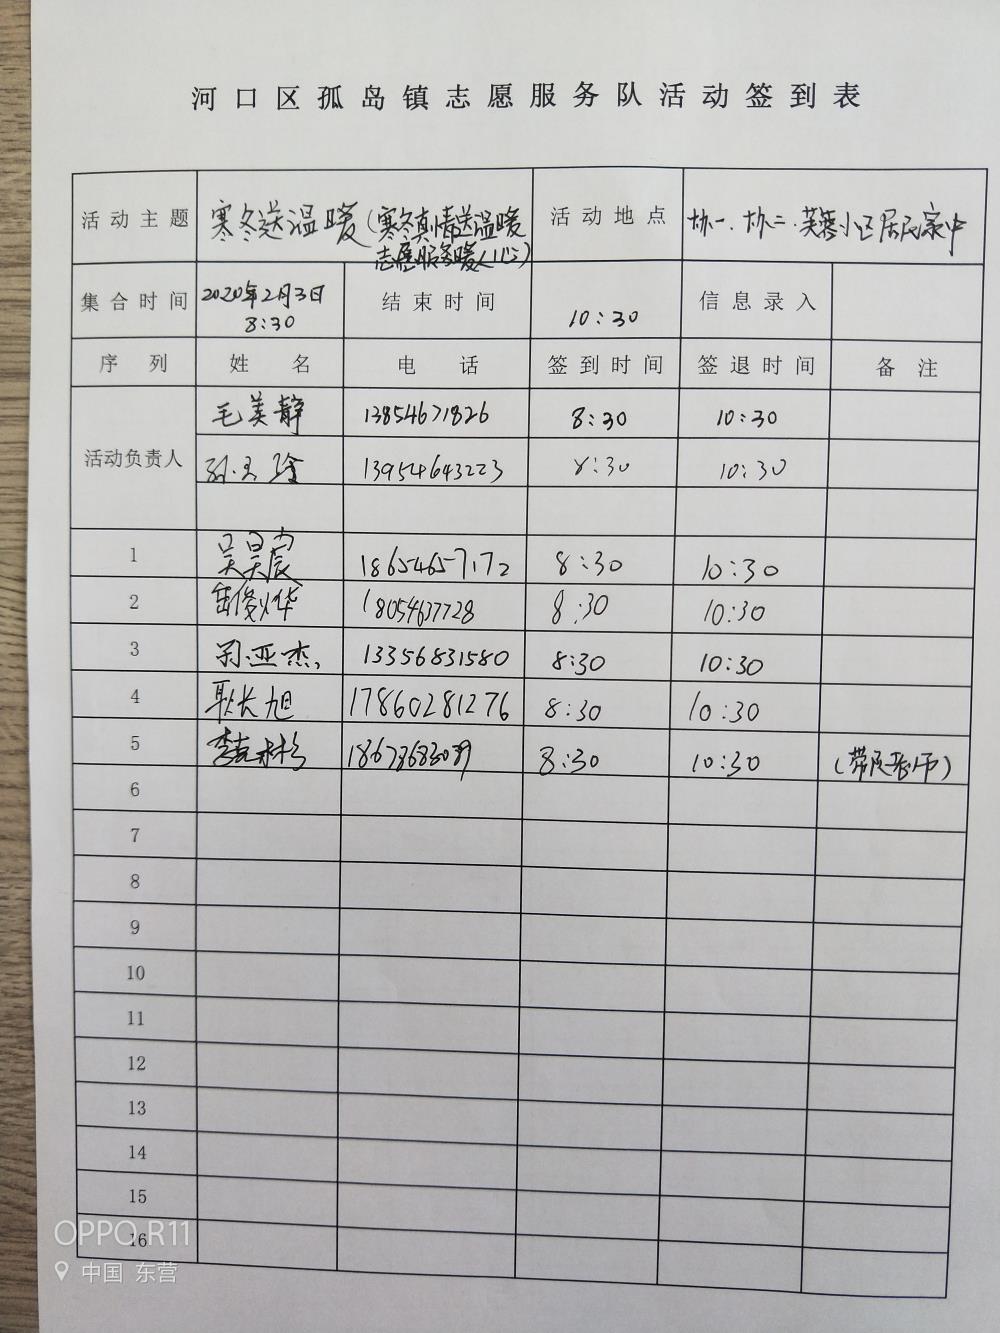 河口区孤岛镇志愿服务队活动签到表
活动主题 寒冬送温暖(寒冬真情送温暖 活动地点 协一、协二、芙蓉小区居民家中
志愿服务暖人心)
集合时间 2020年2月3日 结束时间 10:30 信息录入
8:30
序列 姓名 电话 签到时间 签退时间 备注
活动负责人
毛美静 13854671826 8:30 10:30
孙玉 13954643223 8:30 10:30
1 吴昊宸 18654657172 8:30 10:30
2 俊烨 18054637728 8:30 10:30
3 亚杰 13356831580 8:30 10:30
4 耿长旭 17860281276 8:30 10:30
5 李克彬 8:30 10:30 (带队老师)
6
7
8
9
10
11
12
13
14
15
16
OPPO R11
中国 东营